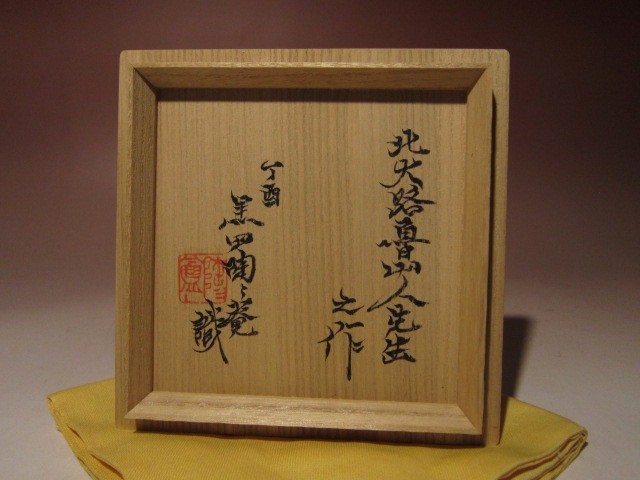 北大路魯山人先生
之作
丁酉
黒田陶々菴
識